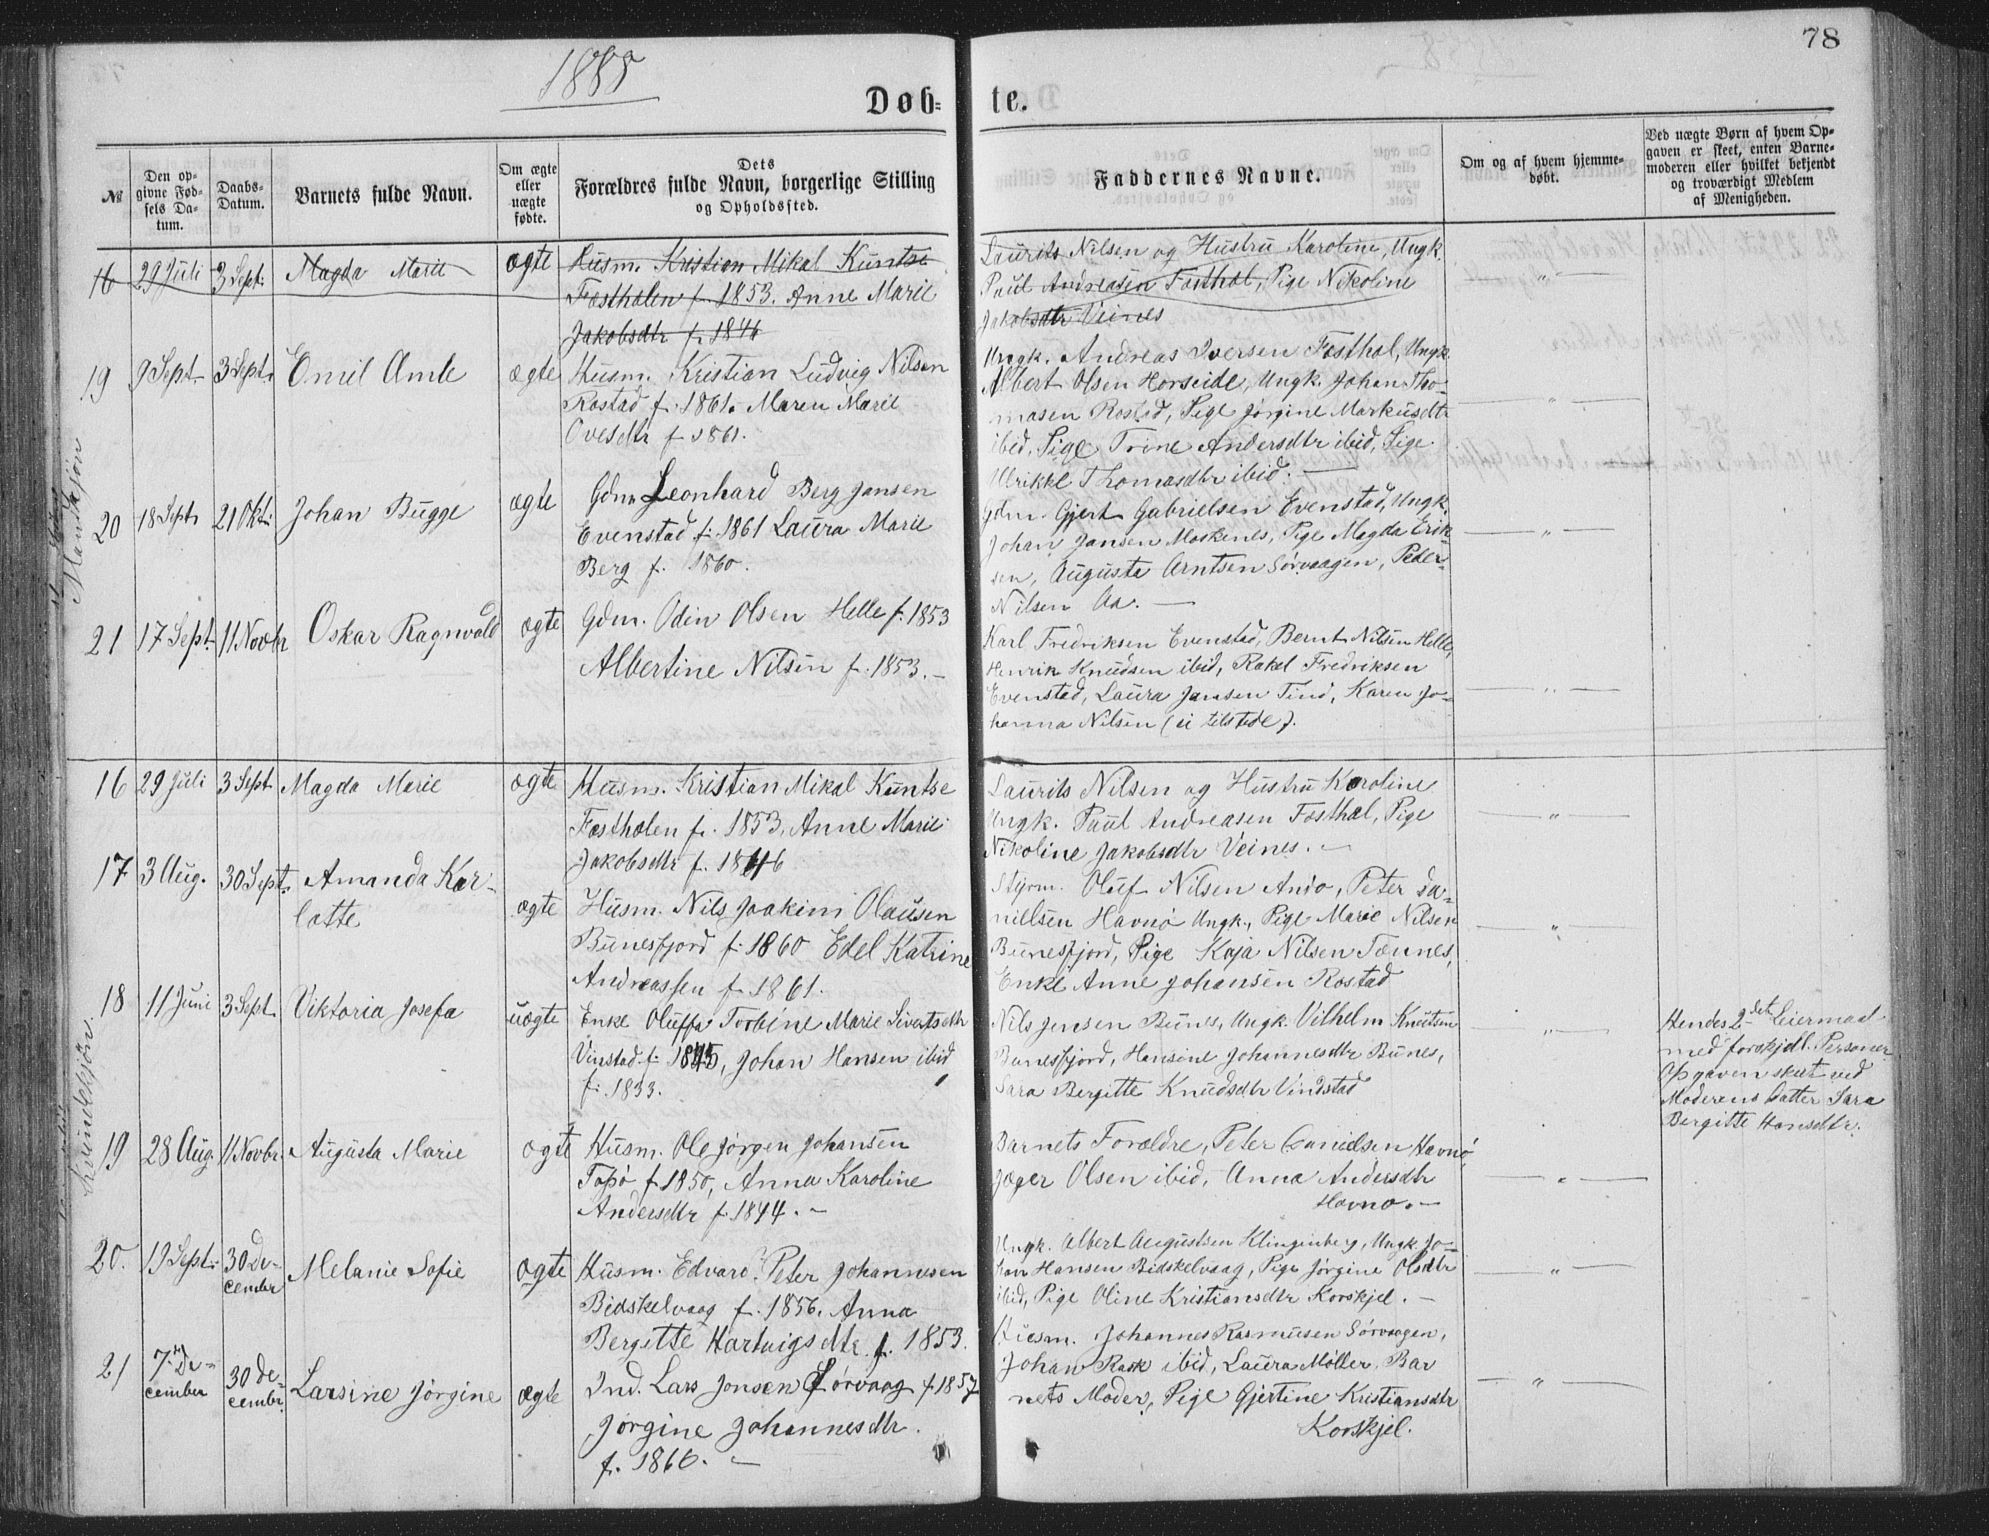 1888
78
Døb-
te.
№
Den op-
givne Fød-
sels Da-
tum.
Daabs-
Datum.
Barnets fulde Navn.
Om ægte
eller
uægte
fødte.
Dets
Forældres fulde Navn, borgerlige Stilling
og Opholdssted.
Faddernes Navne.
Om og af hvem hjemme-
døbt.
Ved uægte Børn af hvem Op-
gaven er skeet, enten Barne-
moderen eller hvilket bekjendt
og troværdigt Medlem
af Menigheden.
Mandkjøn
16 29 Juli 3 Sept. Magda Marie ægte
Husm. Kristian Mikal Kuntse
Fæsthælen f. 1853. Anne Marie
Jakobsdtr f. 1846
Laurits Nilsen og Hustru Karoline, Ungk.
Paul Andreasen Fæsthæl, Pige Nikoline
Jakobsdtr Veines
— " —
19 9 Sept. 3 Sept. Emil Amle ægte
Husm. Kristian Ludvig Nilsen
Rostad f. 1861. Maren Marie
Ovesdtr f. 1861.
Ungk. Andreas Iversen Fæsthæl, Ungk.
Albert Olsen Horseide, Ungk. Johan Tho-
masen Rostad, Pige Jørgine Markusdtr
ibid, Pige Trine Andersdtr ibid, Pige
Ulrikke Thomasdtr ibid. —
— " —
20 18 Sept. 21 Okt. Johan Bugge ægte
Gdm. Leonhard Berg Jansen
Evenstad f. 1861 Laura Marie
Berg f. 1860.
Gdm. Gjert Gabrielsen Evenstad, Ungk.
Johan Jansen Moskenes, Pige Magda Erik-
sen, Auguste Arntsen Sørvaagen, Peder
Nilsen Aa. —
— " —
21 17 Sept. 11 Novbr Oskar Ragnvald ægte
Gdm. Odin Olsen Helle f. 1853
Albertine Nilsen f. 1853. —
Karl Fredriksen Evenstad, Bernt Nilsen Helle,
Henrik Knudsen ibid, Rakel Fredriksen
Evenstad, Laura Jansen Tind, Karen Jo-
hanna Nilsen (ei tilstede).
— " —
Kvindekjøn.
16 29 Juli 3 Sept. Magda Marie ægte
Husm. Kristian Mikal Kuntse
Fæsthælen f. 1853, Anne Marie
Jakobsdtr f. 1846
Laurits Nilsen og Hustru Karoline
Ungk. Paul Andreasen Fæsthæl, Pige
Nikoline Jakobsdtr Veines. —
— " —
17 3 Aug. 30 Sept. Amanda Kar-
lotte
ægte
Husm. Nils Joakim Olausen
Bunesfjord f. 1860 Edel Katrine
Andreassen f. 1861.
Styrm. Oluf Nilsen Andø, Peter Da-
nielsen Havnø Ungk., Pige Marie Nilsen
Bunesfjord, Pige Kaja Nilsen Tennes,
Enke Anne Johansen Rostad
— " —
18 11 Juni 3 Sept. Viktoria Josefa uægte
Enke Oluffa Torbine Marie Sivertsdtr
Vinstad f. 1845, Johan Hansen ibid
f. 1833.
Nils Jensen Bunes, Ungk. Vilhelm Knutsen
Bunesfjord, Hansine Johannesdtr Bunes,
Sara Bergitte Knudsdtr Vindstad
— " —
Hendes 2det Leiermaal
med forskjell. Personer
Opgaven skeet ved
Moderens Datter Sara
Bergitte Hansdtr.
19 28 Aug. 11 Novbr. Augusta Marie ægte
Husm. Ole Jørgen Johansen
Topø f. 1850, Anna Karoline
Andersdtr f. 1844. —
Barnets Forældre, Peter Danielsen Havnø,
Jæger Olsen ibid, Anna Andersdtr
Havnø. —
— " —
20. 19 Sept. 30 De-
cember
Melanie Sofie ægte
Husm. Edvard Peter Johannesen
Bidskelvaag f. 1856. Anna
Bergitte Hartvigsdtr f. 1853.
Ungk. Albert Augustsen Klingenberg, Ungk. Jo-
han Hansen Bidskelvaag, Pige Jørgine Olsdtr
ibid, Pige Oline Kristiansdtr Korskjel. —
— " —
21 7. De-
cember
30 De-
cember
Larsine Jørgine ægte
Ind. Lars Jonsen Sørvaag f. 1857
Jørgine Johannesdtr.
f. 1866. —
Husm. Johannes Rasmusen Sørvaagen,
Johan Rask ibid, Laura Møller, Bar
nets Moder, Pige Gjertine Kristiansdtr
Korskjel.
— " —